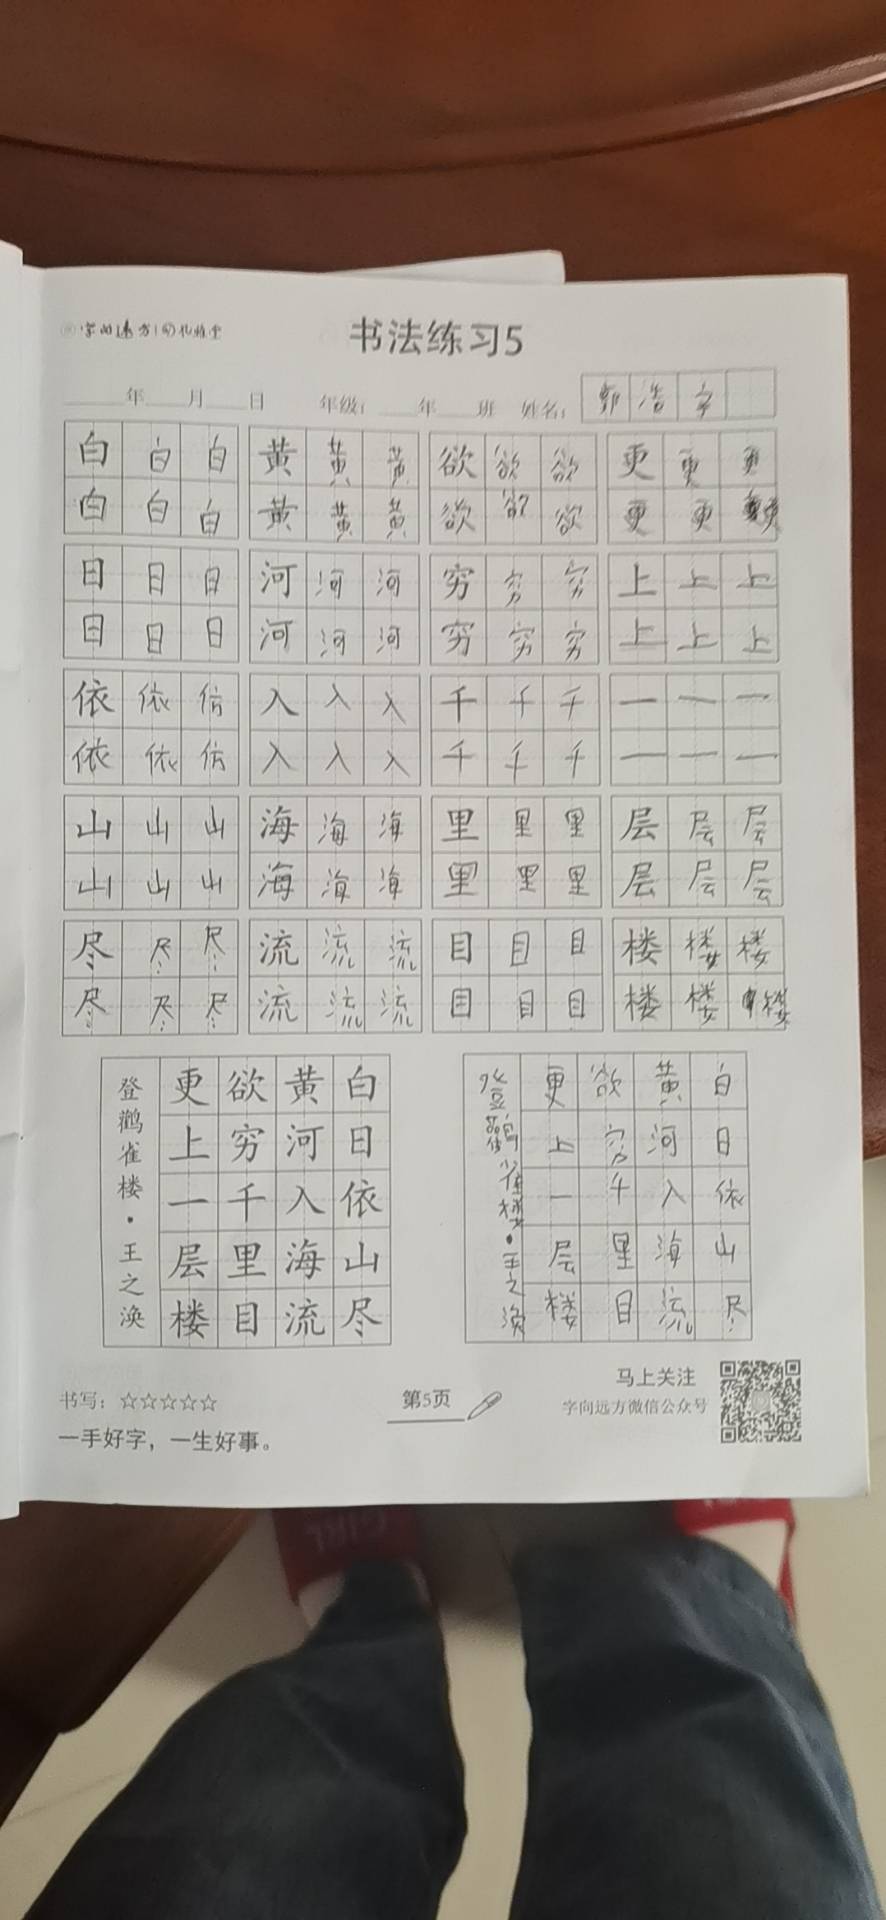 书法练习5
年 月 日 年级： 年 班 姓名： 郭浩宇
白白白 黄黄黄 欲欲欲 更更更
白白白 黄黄黄 欲欲欲 更更更
日日日 河河河 穷穷穷 上上上
日日日 河河河 穷穷穷 上上上
依依依 入入入 千千千 一一一
依依依 入入入 千千千 一一一
山山山 海海海 里里里 层层层
山山山 海海海 里里里 层层层
尽尽尽 流流流 目目目 楼楼楼
尽尽尽 流流流 目目目 楼楼楼
白日依山尽
黄河入海流
欲穷千里目
更上一层楼
登鹳雀楼·王之涣
白日依山尽
黄河入海流
欲穷千里目
更上一层楼
登鹳雀楼·王之涣
书写：☆☆☆☆☆
一手好字，一生好事。
第5页
马上关注
字向远方微信公众号
GIRL